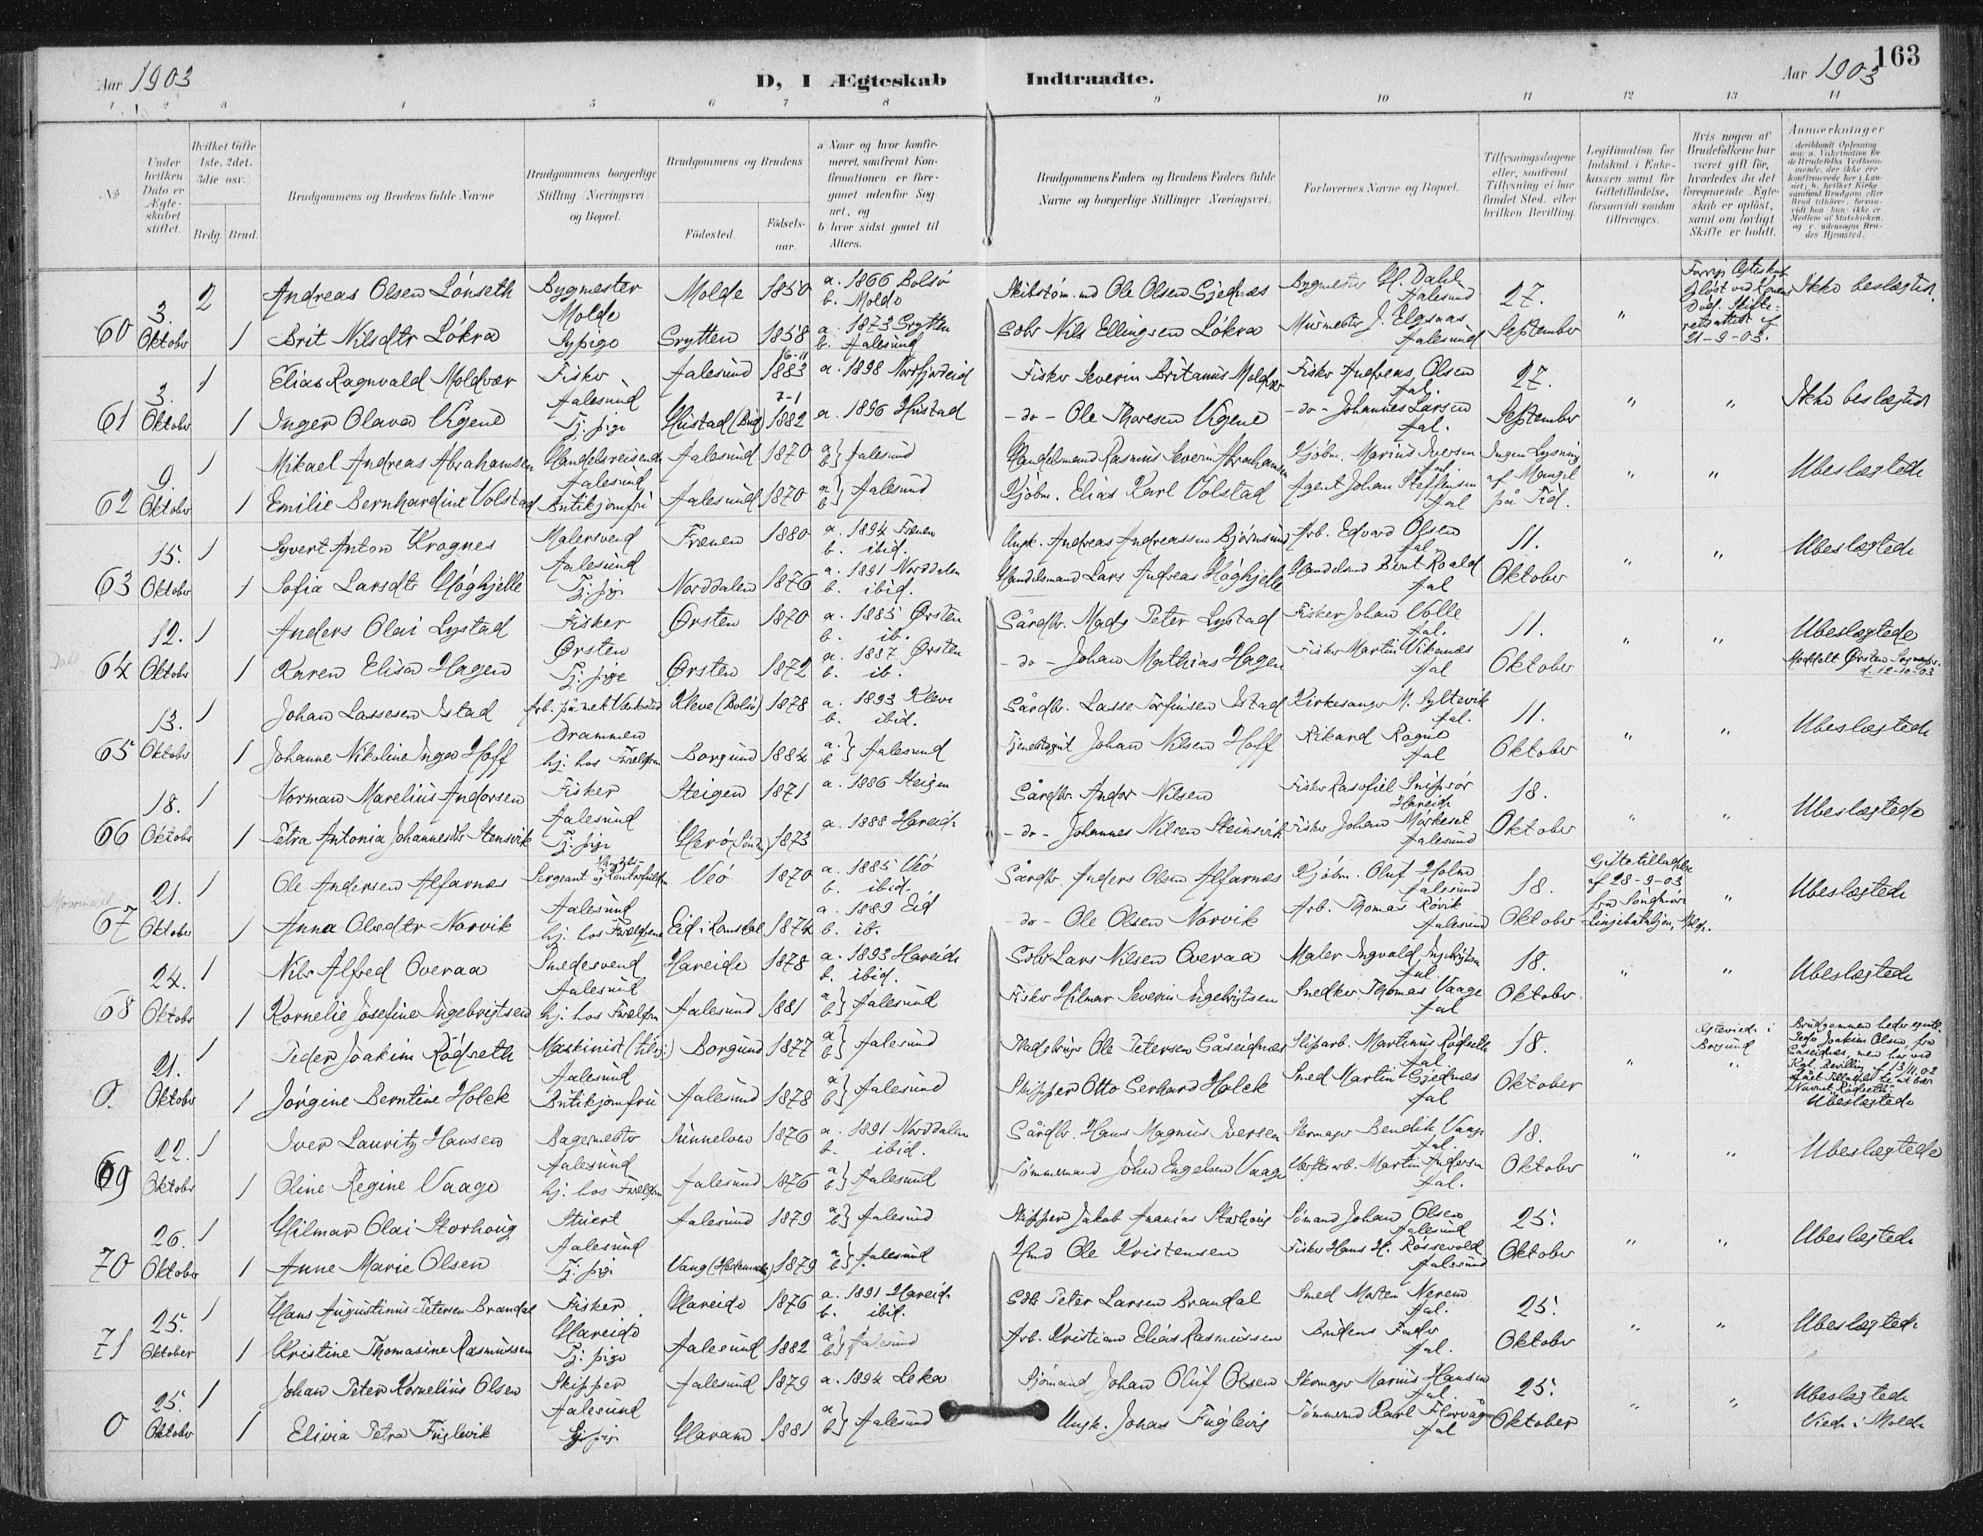 163
Aar 1903
D, 1 Ægteskab Indtraadte.
Aar 1903
1 2 3 4 5 6 7 8 9 10 11 12 13 14
No
Under hvilken Dato er Ægteskabet stiftet.
Hvilket Gifte (1ste, 2det, 3die osv.)
Brdg. Brud.
Brudgommens og Brudens fulde Navne
Brudgommens borgerlige Stilling (Næringsvei) og Bopæl.
Brudgommens og Brudens
Födested. Födselsaar.
a Naar og hvor konfirmeret, saafremt Konfirmationen er foregaaet udenfor Sognet, og
b hvor sidst gaaet til Alters.
Brudgommens Faders og Brudens Faders fulde Navne og borgerlige Stillinger (Næringsvei).
Forlovernes Navne og Bopæl.
Tillysningsdagene eller, saafremt Tillysning ei har fundet Sted, efter hvilken Bevilling.
Legitimation for Indskud i Enkekassen samt for Giftetilladelse, forsaavidt saadan tiltrænges.
Hvis nogen af Brudefolkene har været gift för, hvorledes da det foregaaende Ægteskab er oplöst, samt om lovligt Skifte er holdt.
Anmærkninger
60 3. Oktober 2 Andreas Olsen Lönseth Bygmester Molde Molde 1850 a. 1866 Bolsö b. Molde Ole Olsen Gjednæs Bygmester H. Dahl Aalesund 27. September " Ikke beslægtet.
1 Brit Nilsdtr Lökra Sypige Grytten 1858 a. 1873 Grytten b. Aalesund Nils Ellingsen Lökra Murmester J. Elgsaas Aalesund 21-9-03.
61 3. Oktober 1 Elias Ragnvald Moldvær Fisker Aalesund Aalesund 16-11 1883 a. 1898 Nordfjordeid Fisker Severin Britanus Moldvær Fisker Andreas Olsen Aal. 27. September " " Ikke beslægtet
1 Inger Olava Vigene Tj. pige Hustad (Bud) 7-1 1882 a. 1896 Hustad -do- Ole Thoresen Vigene -do- Johannes Larsen Aal.
62 9. Oktober 1 Mikael Andreas Abrahamsen Handelsreisende Aalesund Aalesund 1870 a b} Aalesund Handelsmand Rasmus Severin Abrahamsen Kjöbm. Marius Iversen Aal. Ingen Lysning af Mangel på Tid. " " Ubeslægtede
1 Emilie Bernhardine Volstad Butikjomfru Aalesund 1870 a b} Aalesund Kjöbm. Elias Karl Volstad Agent Johan Steffensen Aal
63 15. Oktober 1 Syvert Anton Krognes Malersvend Aalesund Frænen 1880 a. 1894 Frænen b. ibid. Ungk. Andreas Andreassen Björnsund Arb. Edvard Olsen Aal. 11. Oktober " " Ubeslægtede
1 Sofia Larsdtr Höghjelle Tj. pige Norddalen 1876 a. 1891 Norddalen b. ibid. Handelsmand Lars Andreas Höghjelle Handelsmd Bernt Roald Aal
64 12. Oktober 1 Anders Olai Lystad Fisker Ørsten Ørsten 1870 a. 1885 Ørsten b. ib. Gårdbr. Mads Peter Lystad Fisker Johan Volle Aal. 11. Oktober " " Ubeslægtede
1 Karen Elisa Hagen Tj. pige Ørsten 1872 a. 1887 Ørsten b. ib. -do- Johan Mathias Hagen Fisker Martin Vikenes Aal d. 12-10-03
65 13. Oktober 1 Johan Lassesen Istad Arb. på mek Værksted Drammen Kleve (Bolsö) 1878 a. 1893 Kleve b. ibid. Gårdbr. Lasse Torfinsen Istad Kirkesanger M. Syltevik Aal. 11. Oktober " " Ubeslægtede
1 Johanne Nikoline Inga Hoff hj. hos Forældren Borgund 1884 a. b} Aalesund Johan Nilsen Hoff Rikard Rogne Aal
66 18. Oktober 1 Norman Marelius Andersen Fisker Aalesund Steigen 1871 a. 1886 Steigen Gårdbr. Ander Nilsen Fisker Rasofiel Hareide 18. Oktober " " Ubeslægtede
1 Petra Antonia Johannesdtr Stensvik Tj. pige Herö 1873 a. 1888 Hareide -do- Johannes Nilsen Steinsvik Fisker Johan Mörkeset Aalesund
67 21. Oktober 1 Ole Andersen Alfarnæs Sergeant og Aalesund Veö 1870 a. 1885 Veö b. ibid. Gårdbr. Anders Olsen Alfarnæs Kjöbm. Oluf Holm Aalesund 18. Oktober Giftetilladelse af 28-9-03 " Ubeslægtede
1 Anna Olsdtr Norvik hj. hos Forældrene Eid i Romsdal 1874 a. 1889 Eid b. ib. -do- Ole Olsen Norvik Arb. Thomas Rövik Aalesund
68 24. Oktober 1 Nils Alfred Overaa Smedesvend Aalesund Hareide 1878 a. 1893 Hareide b. ibid. Lars Nilsen Overaa Maler Ingvald Ingebrigtsen Aal. 18. Oktober " " Ubeslægtede
1 Kornelie Josefine Ingebrigtsen hj. hos Forældren Aalesund 1881 a b} Aalesund Fisker Hilmar Severin Ingebrigtsen Snedker Thomas Vaage Aal
0. 21. Oktober 1 Peder Joakim Rödseth Maskinist Aalesund Borgund 1877 a b} Aalesund Ole Petersen Gåseidnæs Martinus Rödseth Aal 18. Oktober " Borgund " Ubeslægtede
1 Jörgine Berntine Holek Butikjomfru Aalesund 1878 a b} Aalesund Skipper Otto Gerhard Holek Smed Martin Gjednæs Aal
69 22. Oktober 1 Iver Lauritz Hansen Bagermester Aalesund Sunnelven 1876 a. 1891 Norddalen b. ibid. Gårdbr. Hans Magnus Iversen Skomager Bendik Vaage Aal. 18. Oktober " " Ubeslægtede
1 Oline Regine Vaage hj. hos Forældren Aalesund 1876 a b} Aalesund Tömmermand John Engelsen Vaage Martin Andersen Aal.
70 26. Oktober 1 Hilmar Olai Storhoug Stuert Aalesund Aalesund 1879 a b} Aalesund Skipper Jakob Ananias Storhoug Sömand Johan Olsen Aalesund 25. Oktober " " Ubeslægtede
1 Anne Marie Olsen Tj. pige Vang (Hedemark) 1879 a b} Aalesund Ole Kristensen Fisker Hans H. Rössevold Aalesund
71 25. Oktober 1 Hans Augustinus Petersen Brandal Fisker Hareide Hareide 1876 a. 1891 Hareide b. ibid. Peter Larsen Brandal Smed Morten Nerem Aal. 25. Oktober " " Ubeslægtede
1 Kristine Thomasine Rasmussen Tj. pige Aalesund 1882 a b} Aalesund Arb. Kristian Elias Rasmussen Brudens Fader Aal.
0 25. Oktober 1 Johan Peter Kornelius Olsen Skipper Aalesund Aalesund 1879 a. 1894 Leka Sjömand Johan Oluf Olsen Skomager Marius Hansen Aal. 25. Oktober " " Ubeslægtede
1 Elivia Petra Fuglevik Tj. pige Haram 1881 a b} Aalesund Ungk. Johas Fuglevig Tömmermd Karl Flervåg Aal Viede i Molde